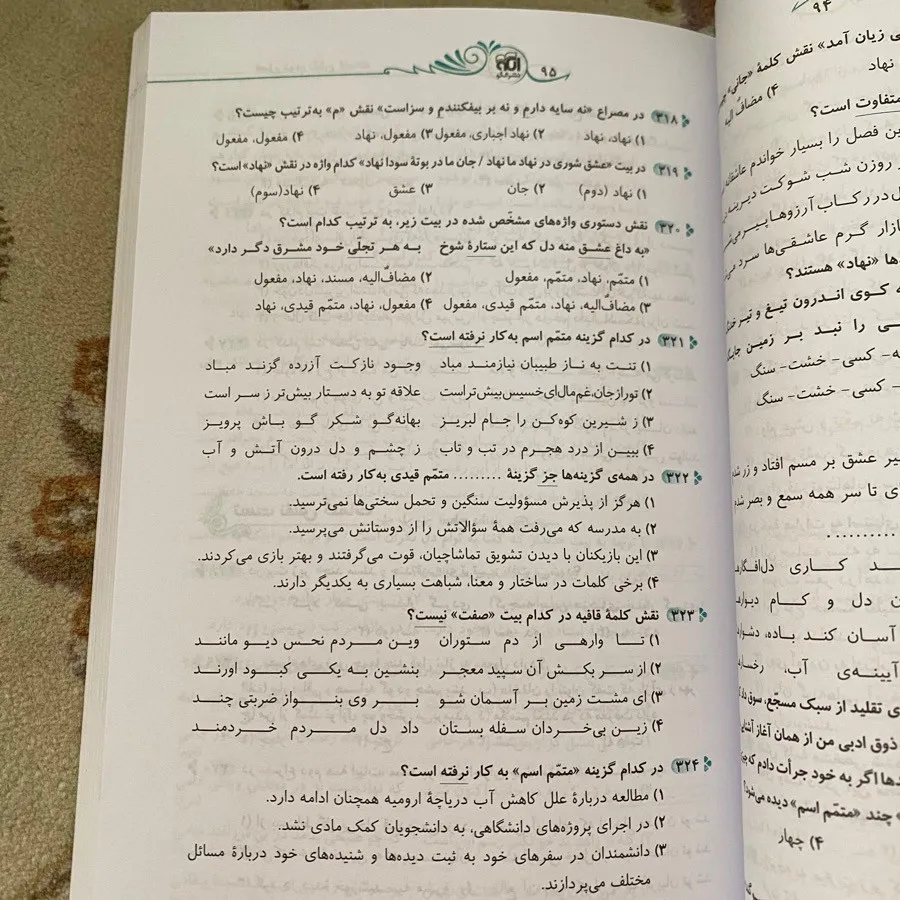 ۹۵
۳۱۸ در مصراع «نه سایه دارم و نه بر بیفکنندم و سزاست» نقش «م» به‌ترتیب چیست؟
۱) نهاد، نهاد ۲) نهاد اجباری، مفعول ۳) مفعول، نهاد ۴) مفعول، مفعول
۳۱۹ در بیت «عشق شوری در نهاد ما نهاد / جان ما در بوتهٔ سودا نهاد» کدام واژه در نقش «نهاد» است؟
۱) نهاد (دوم) ۲) جان ۳) عشق ۴) نهاد(سوم)
۳۲۰ نقش دستوری واژه‌های مشخّص شده در بیت زیر، به ترتیب کدام است؟
«به داغ عشق منه دل که این ستارهٔ شوخ به هر تجلّی خود مشرق دگر دارد»
۱) متمّم، نهاد، متمّم، مفعول ۲) مضافٌ‌الیه، مسند، نهاد، مفعول
۳) مضافٌ‌الیه، نهاد، متمّم قیدی، مفعول ۴) مفعول، نهاد، متمّم قیدی، نهاد
۳۲۱ در کدام گزینه متمّم اسم به‌کار نرفته است؟
۱) تنت به ناز طبیبان نیازمند مباد وجود نازکت آزرده گزند مباد
۲) تو را ز جان، غم مال ای خسیس بیش‌تر است علاقه تو به دستار بیش‌تر ز سر است
۳) ز شیرین کوه‌کن را جام لبریز بهانه‌گو شکر گو باش پرویز
۴) ببین از درد هجرم در تب و تاب ز چشم و دل درون آتش و آب
۳۲۲ در همه‌ی گزینه‌ها جز گزینهٔ ......... متمّم قیدی به‌کار رفته است.
۱) هرگز از پذیرش مسؤولیت سنگین و تحمل سختی‌ها نمی‌ترسید.
۲) به مدرسه که می‌رفت همهٔ سؤالاتش را از دوستانش می‌پرسید.
۳) این بازیکنان با دیدن تشویق تماشاچیان، قوت می‌گرفتند و بهتر بازی می‌کردند.
۴) برخی کلمات در ساختار و معنا، شباهت بسیاری به یکدیگر دارند.
۳۲۳ نقش کلمهٔ قافیه در کدام بیت «صفت» نیست؟
۱) تا وارهی از دم ستوران وین مردم نحس دیو مانند
۲) از سر بکش آن سپید معجر بنشین به یکی کبود اورند
۳) ای مشت زمین بر آسمان شو بر وی بنواز ضربتی چند
۴) زین بی‌خردان سفله بستان داد دل مردم خردمند
۳۲۴ در کدام گزینه «متمّم اسم» به کار نرفته است؟
۱) مطالعه دربارهٔ علل کاهش آب دریاچهٔ ارومیه همچنان ادامه دارد.
۲) در اجرای پروژه‌های دانشگاهی، به دانشجویان کمک مادی نشد.
۳) دانشمندان در سفرهای خود به ثبت دیده‌ها و شنیده‌های خود دربارهٔ مسائل
مختلف می‌پردازند.
۹۴
ی زیان آمد» نقش کلمهٔ «جانی»
نهاد ۴) مضافٌ الیه
متفاوت است؟
این فصل را بسیار خواندم عاشقانه
روزن شب شوکت دیرینه
ل در رکاب آرزوها پیر
بازار گرم عاشقی‌ها سرد
ها «نهاد» هستند؟
که کوی اندرون تیغ و تیر
ی را نبد بر زمین
ه- کسی- خشت- سنگ
- کسی- خشت- سنگ
عشق بر مسم افتاد و زر شد
ی تا سر همه سمع و بصر
..........
د کاری دل‌افگار
ن دل و کام
آسان کند باده،
آیینه‌ی آب،
ی تقلید از سبک مسجّع،
ذوق ادبی من از همان آغاز
دها اگر به خود جرأت دادم که
» چند «متمّم اسم» دیده می‌شود؟
۴) چهار